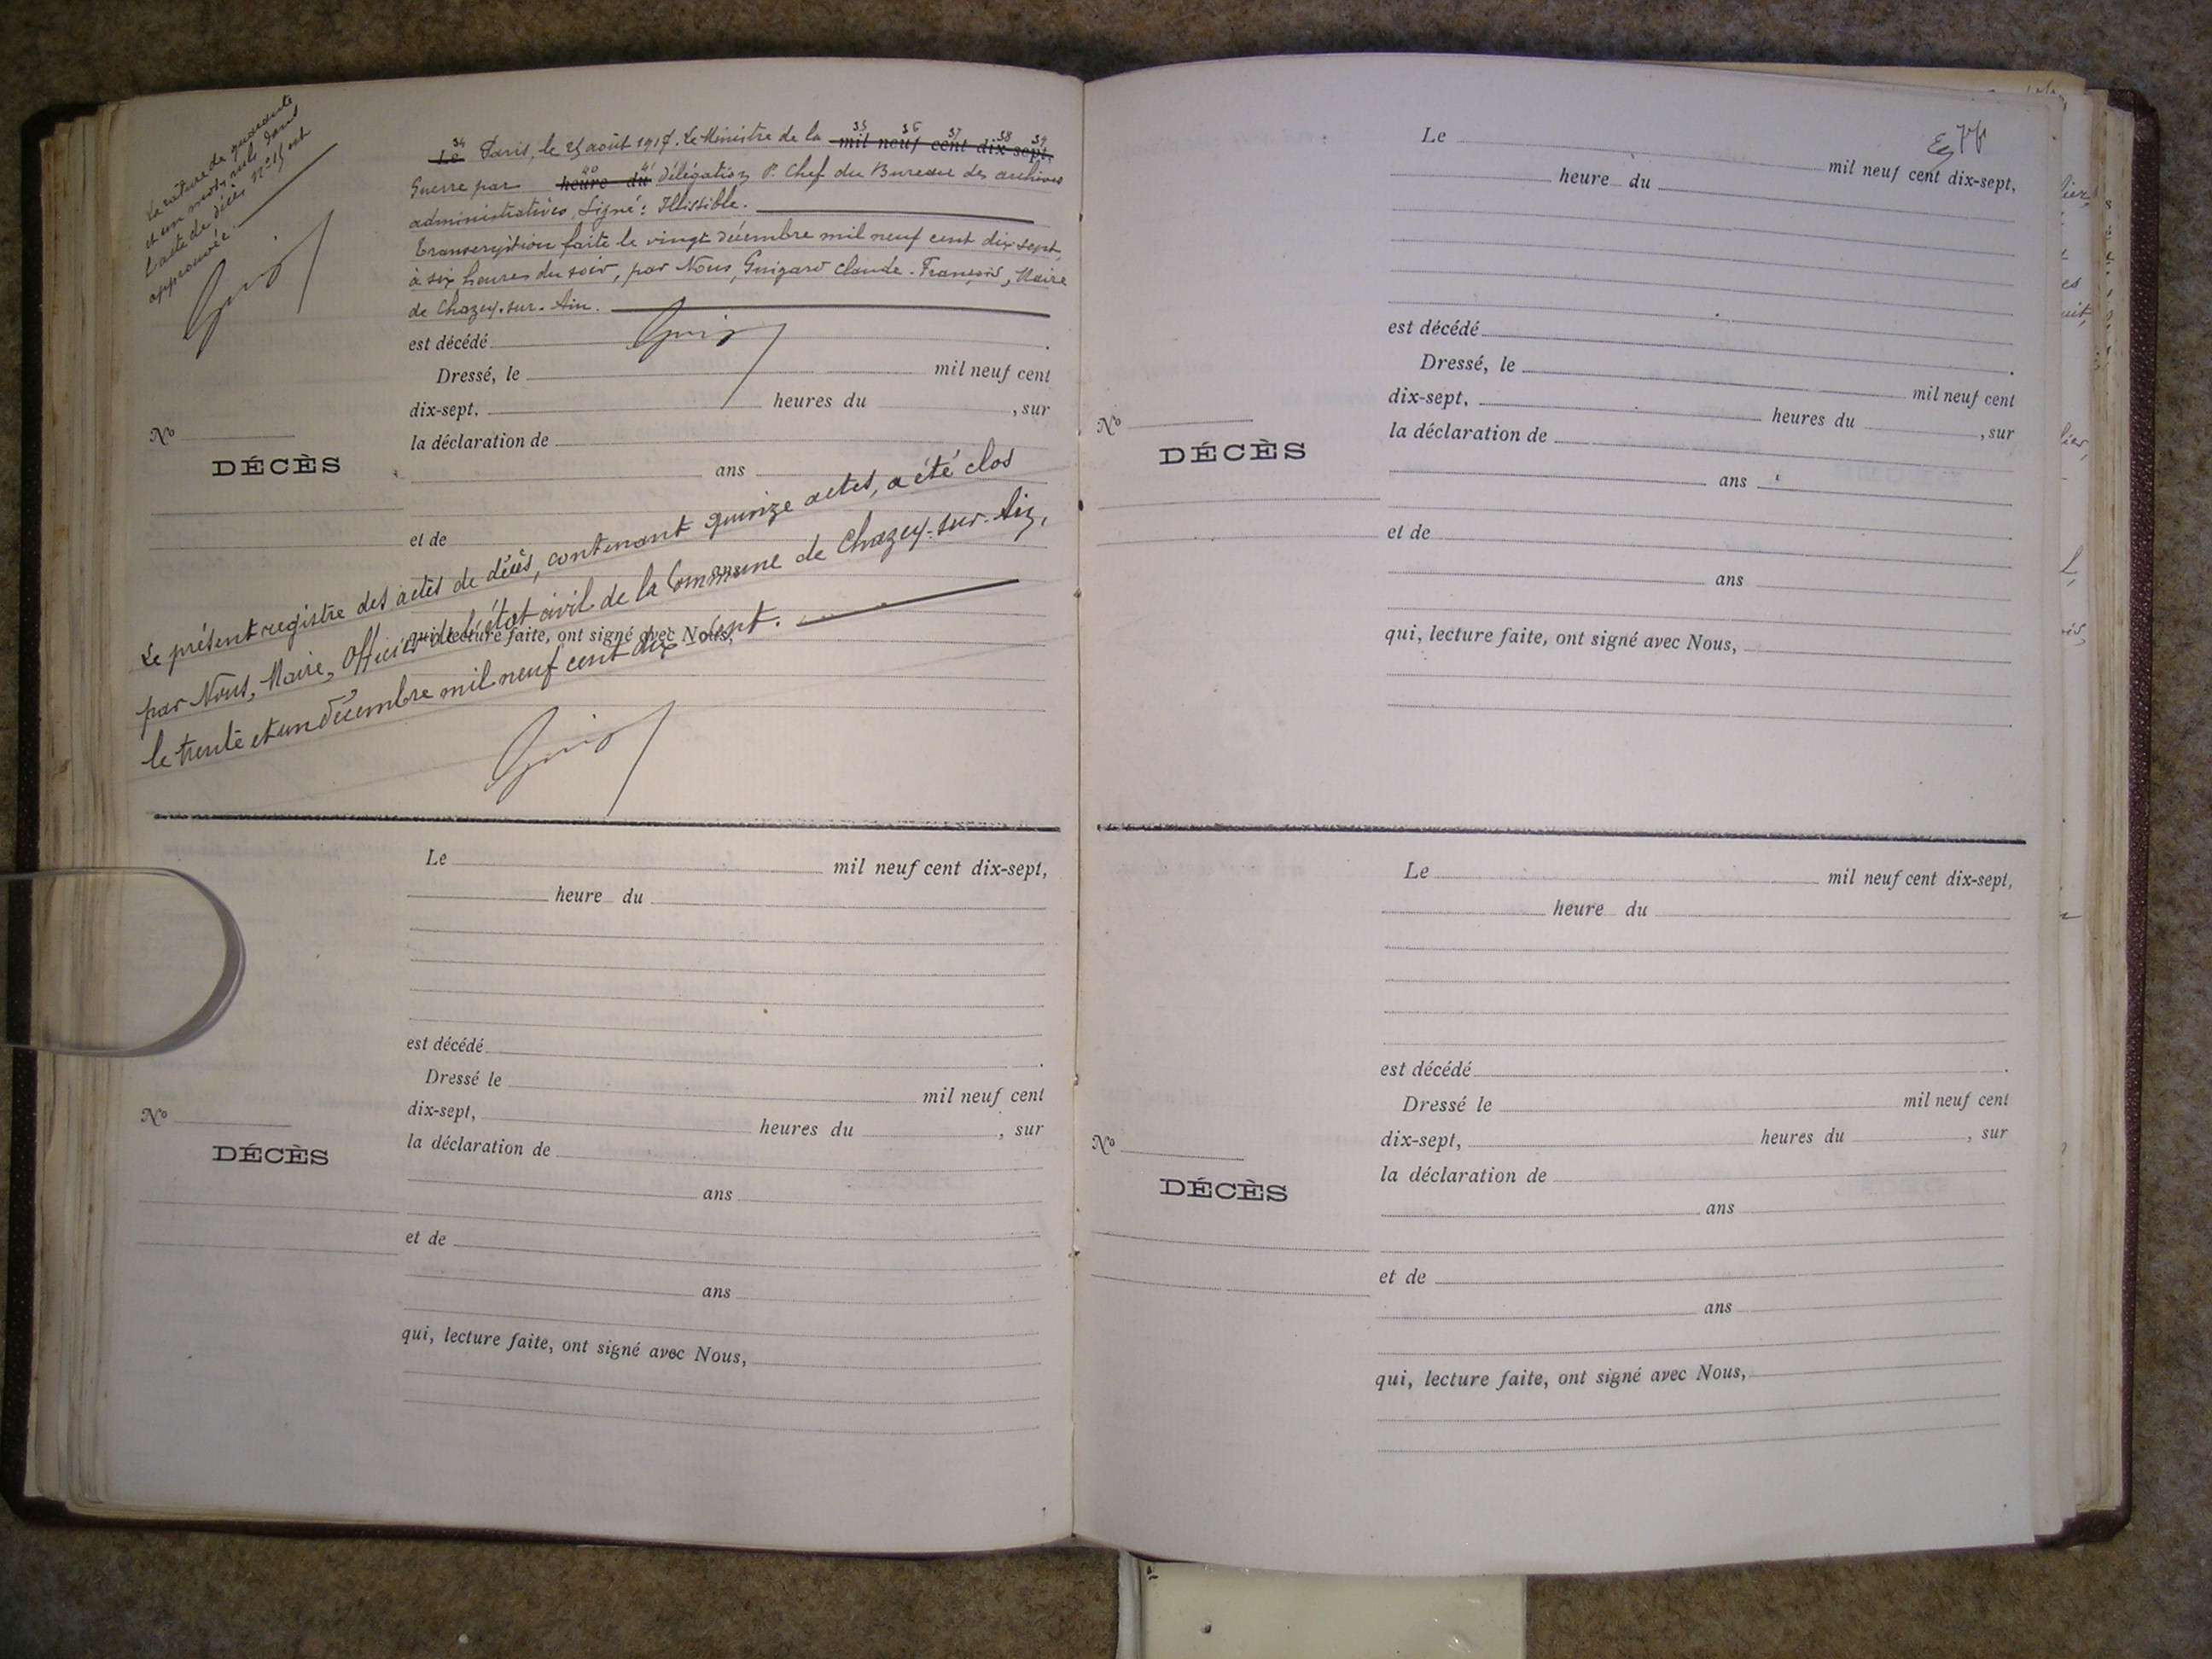 La rature de quarante
et un mots nuls dans
l'acte de décès N° 15 est
approuvée.
34 35 36 37 38 39
Le Paris, le 25 août 1917. Le Ministre de la mil neuf cent dix-sept,
40 41
Guerre par heure du délégation P. Chef du Bureau des archives
administratives, Signé: Illisible.
Transcription faite le vingt décembre mil neuf cent dix sept,
à six heures du soir, par Nous, Guigard Claude-François, Maire
de Chazey-sur-Ain.
est décédé
Dressé, le mil neuf cent
dix-sept, heures du , sur
la déclaration de
No
DÉCÈS
ans
et de
Le présent registre des actes de décès, contenant quinze actes, a été clos
par Nous, Maire, Officier de l'état civil de la Commune de Chazey-sur-Ain,
qui, lecture faite, ont signé avec Nous,
le trente et un décembre mil neuf cent dix sept.
Le mil neuf cent dix-sept,
heure du
est décédé
Dressé le mil neuf cent
dix-sept, heures du , sur
No
la déclaration de
DÉCÈS
ans
et de
ans
qui, lecture faite, ont signé avec Nous,
Le mil neuf cent dix-sept,
heure du
est décédé
Dressé, le mil neuf cent
dix-sept, heures du , sur
No
la déclaration de
DÉCÈS
ans
et de
ans
qui, lecture faite, ont signé avec Nous,
Le mil neuf cent dix-sept,
heure du
est décédé
Dressé le mil neuf cent
dix-sept, heures du , sur
No
la déclaration de
DÉCÈS
ans
et de
ans
qui, lecture faite, ont signé avec Nous,